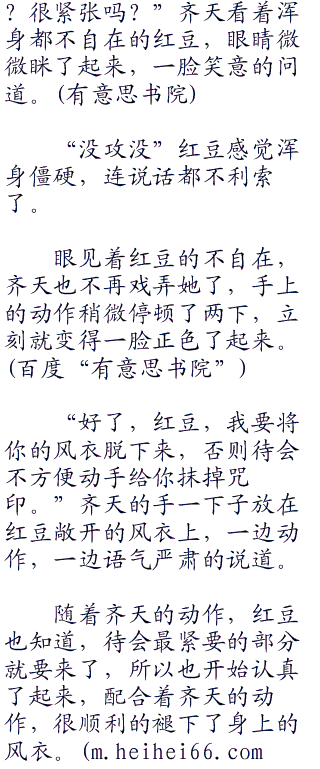 ？很紧张吗？”齐天看着浑
身都不自在的红豆，眼睛微
微眯了起来，一脸笑意的问
道。(有意思书院)
“没攻没”红豆感觉浑
身僵硬，连说话都不利索
了。
眼见着红豆的不自在，
齐天也不再戏弄她了，手上
的动作稍微停顿了两下，立
刻就变得一脸正色了起来。
(百度“有意思书院”)
“好了，红豆，我要将
你的风衣脱下来，否则待会
不方便动手给你抹掉咒
印。”齐天的手一下子放在
红豆敞开的风衣上，一边动
作，一边语气严肃的说道。
随着齐天的动作，红豆
也知道，待会最紧要的部分
就要来了，所以也开始认真
了起来，配合着齐天的动
作，很顺利的褪下了身上的
风衣。(m.heihei66.com